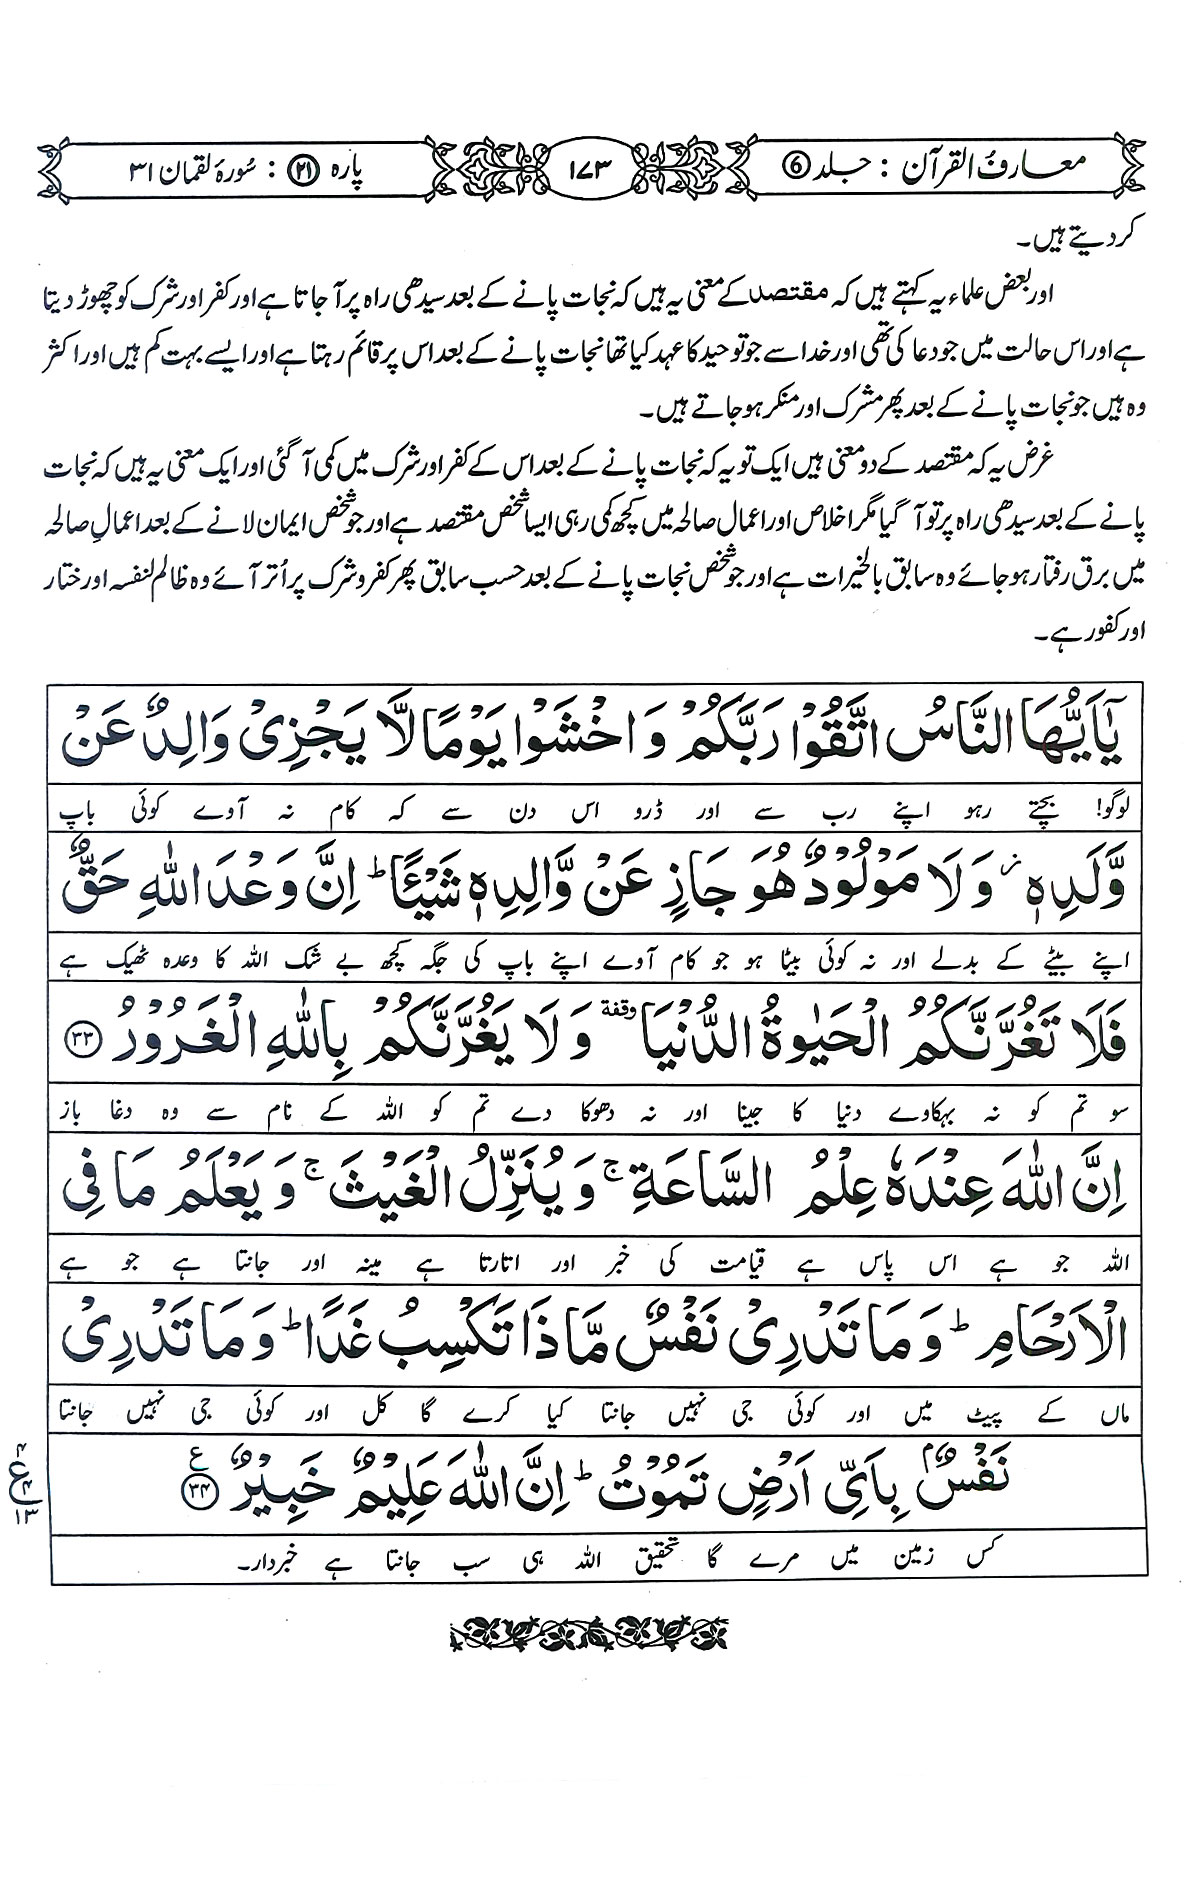 معارف القرآن : جلد ⑥
۱۷۳
پارہ ㉑ : سُورۂ لقمان ۳۱
کردیتے ہیں۔
اور بعض علماء یہ کہتے ہیں کہ مقتصد کے معنی یہ ہیں کہ نجات پانے کے بعد سیدھی راہ پر آ جاتا ہے اور کفر اور شرک کو چھوڑ دیتا
ہے اور اس حالت میں جو دعا کی تھی اور خدا سے جو توحید کا عہد کیا تھا نجات پانے کے بعد اس پر قائم رہتا ہے اور ایسے بہت کم ہیں اور اکثر
وہ ہیں جو نجات پانے کے بعد پھر مشرک اور منکر ہو جاتے ہیں۔
غرض یہ کہ مقتصد کے دو معنی ہیں ایک تو یہ کہ نجات پانے کے بعد اس کے کفر اور شرک میں کمی آ گئی اور ایک معنی یہ ہیں کہ نجات
پانے کے بعد سیدھی راہ پر تو آ گیا مگر اخلاص اور اعمال صالحہ میں کچھ کمی رہی ایسا شخص مقتصد ہے اور جو شخص ایمان لانے کے بعد اعمالِ صالحہ
میں برق رفتار ہو جائے وہ سابق بالخیرات ہے اور جو شخص نجات پانے کے بعد حسب سابق پھر کفر و شرک پر اُتر آئے وہ ظالم لنفسہ اور ختار
اور کفور ہے۔
يٰۤاَيُّهَا النَّاسُ اتَّقُوْا رَبَّكُمْ وَ اخْشَوْا يَوْمًا لَّا يَجْزِىْ وَالِدٌ عَنْ
لوگو! بچتے رہو اپنے رب سے اور ڈرو اس دن سے کہ کام نہ آوے کوئی باپ
وَّلَدِهٖ ز وَ لَا مَوْلُوْدٌ هُوَ جَازٍ عَنْ وَّالِدِهٖ شَيْـًٔا ط اِنَّ وَعْدَ اللّٰهِ حَقٌّ
اپنے بیٹے کے بدلے اور نہ کوئی بیٹا ہو جو کام آوے اپنے باپ کی جگہ کچھ بے شک اللہ کا وعدہ ٹھیک ہے
فَلَا تَغُرَّنَّكُمُ الْحَيٰوةُ الدُّنْيَا وقفة وَ لَا يَغُرَّنَّكُمْ بِاللّٰهِ الْغَرُوْرُ ۳۳
سو تم کو نہ بہکاوے دنیا کا جینا اور نہ دھوکا دے تم کو اللہ کے نام سے وہ دغا باز
اِنَّ اللّٰهَ عِنْدَهٗ عِلْمُ السَّاعَةِ ج وَ يُنَزِّلُ الْغَيْثَ ج وَ يَعْلَمُ مَا فِى
اللہ جو ہے اس پاس ہے قیامت کی خبر اور اتارتا ہے مینہ اور جانتا ہے جو ہے
الْاَرْحَامِ ط وَ مَا تَدْرِىْ نَفْسٌ مَّاذَا تَكْسِبُ غَدًا ط وَ مَا تَدْرِىْ
ماں کے پیٹ میں اور کوئی جی نہیں جانتا کیا کرے گا کل اور کوئی جی نہیں جانتا
نَفْسٌۢ بِاَىِّ اَرْضٍ تَمُوْتُ ط اِنَّ اللّٰهَ عَلِيْمٌ خَبِيْرٌ ع ۳۴
۴ ع ۴ ۱۳
کس زمین میں مرے گا تحقیق اللہ ہی سب جانتا ہے خبردار۔